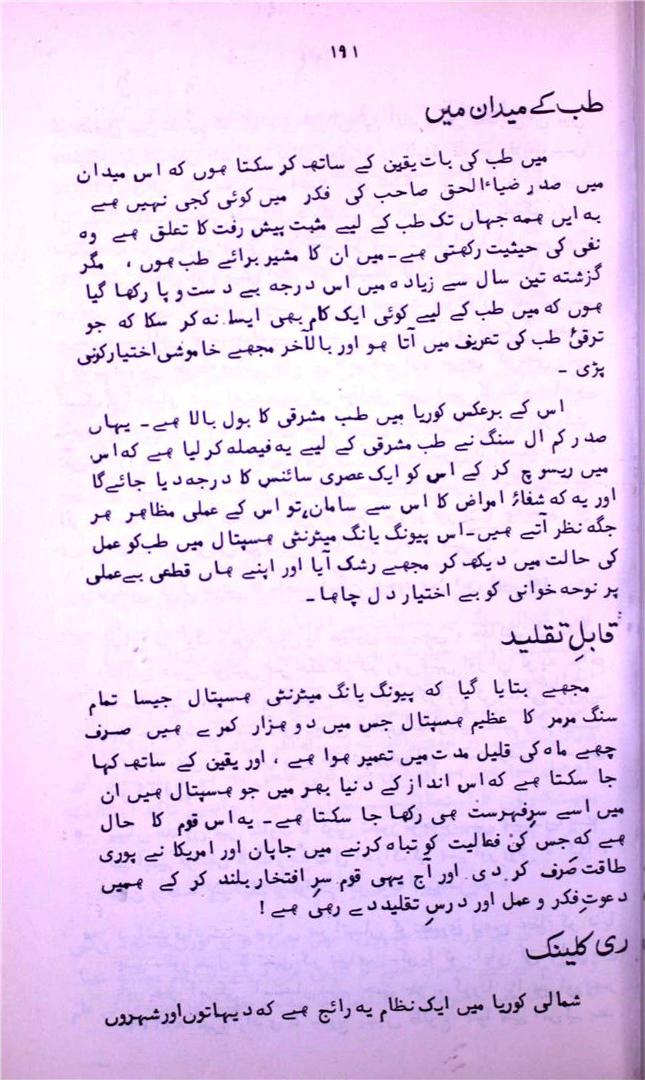 ۱۹۱
طب کے میدان میں
میں طب کی بات یقین کے ساتھ کر سکتا ھوں کہ اس میدان
میں صدر ضیاءالحق صاحب کی فکر میں کوئی کجی نہیں ھے
بہ ایں ھمہ جہاں تک طب کے لیے مثبت پیش رفت کا تعلق ھے وہ
نفی کی حیثیت رکھتی ھے۔ میں ان کا مشیر برائے طب ھوں ، مگر
گزشتہ تین سال سے زیادہ میں اس درجہ بے دست و پا رکھا گیا
ھوں کہ میں طب کے لیے کوئی ایک کام بھی ایسا نہ کر سکا کہ جو
ترقیٔ طب کی تعریف میں آتا ھو اور بالآخر مجھے خاموشی اختیار کرنی
پڑی ۔
اس کے برعکس کوریا میں طب مشرقی کا بول بالا ھے۔ یہاں
صدر کم ال سنگ نے طب مشرقی کے لیے یہ فیصلہ کر لیا ھے کہ اس
میں ریسرچ کر کے اس کو ایک عصری سائنس کا درجہ دیا جائے گا
اور یہ کہ شفائے امراض کا اس سے سامان، تو اس کے عملی مظاھر ھر
جگہ نظر آتے ھیں۔ اس پیونگ یانگ میٹرنٹی ھسپتال میں طب کو عمل
کی حالت میں دیکھ کر مجھے رشک آیا اور اپنے ھاں قطعی بے عملی
پر نوحہ خوانی کو بے اختیار دل چاھا۔
قابلِ تقلید
مجھے بتایا گیا کہ پیونگ یانگ میٹرنٹی ھسپتال جیسا تمام
سنگ مرمر کا عظیم ھسپتال جس میں دو ھزار کمرے ھیں صرف
چھے ماہ کی قلیل مدت میں تعمیر ھوا ھے ، اور یقین کے ساتھ کہا
جا سکتا ھے کہ اس انداز کے دنیا بھر میں جو ھسپتال ھیں ان
میں اسے سرِفہرست ھی رکھا جا سکتا ھے۔ یہ اس قوم کا حال
ھے کہ جس کی فعالیت کو تباہ کرنے میں جاپان اور امریکا نے پوری
طاقت صَرف کر دی اور آج یہی قوم سرِ افتخار بلند کر کے ھمیں
دعوتِ فکر و عمل اور درسِ تقلید دے رھی ھے !
ری کلینک
شمالی کوریا میں ایک نظام یہ رائج ھے کہ دیہاتوں اور شہروں